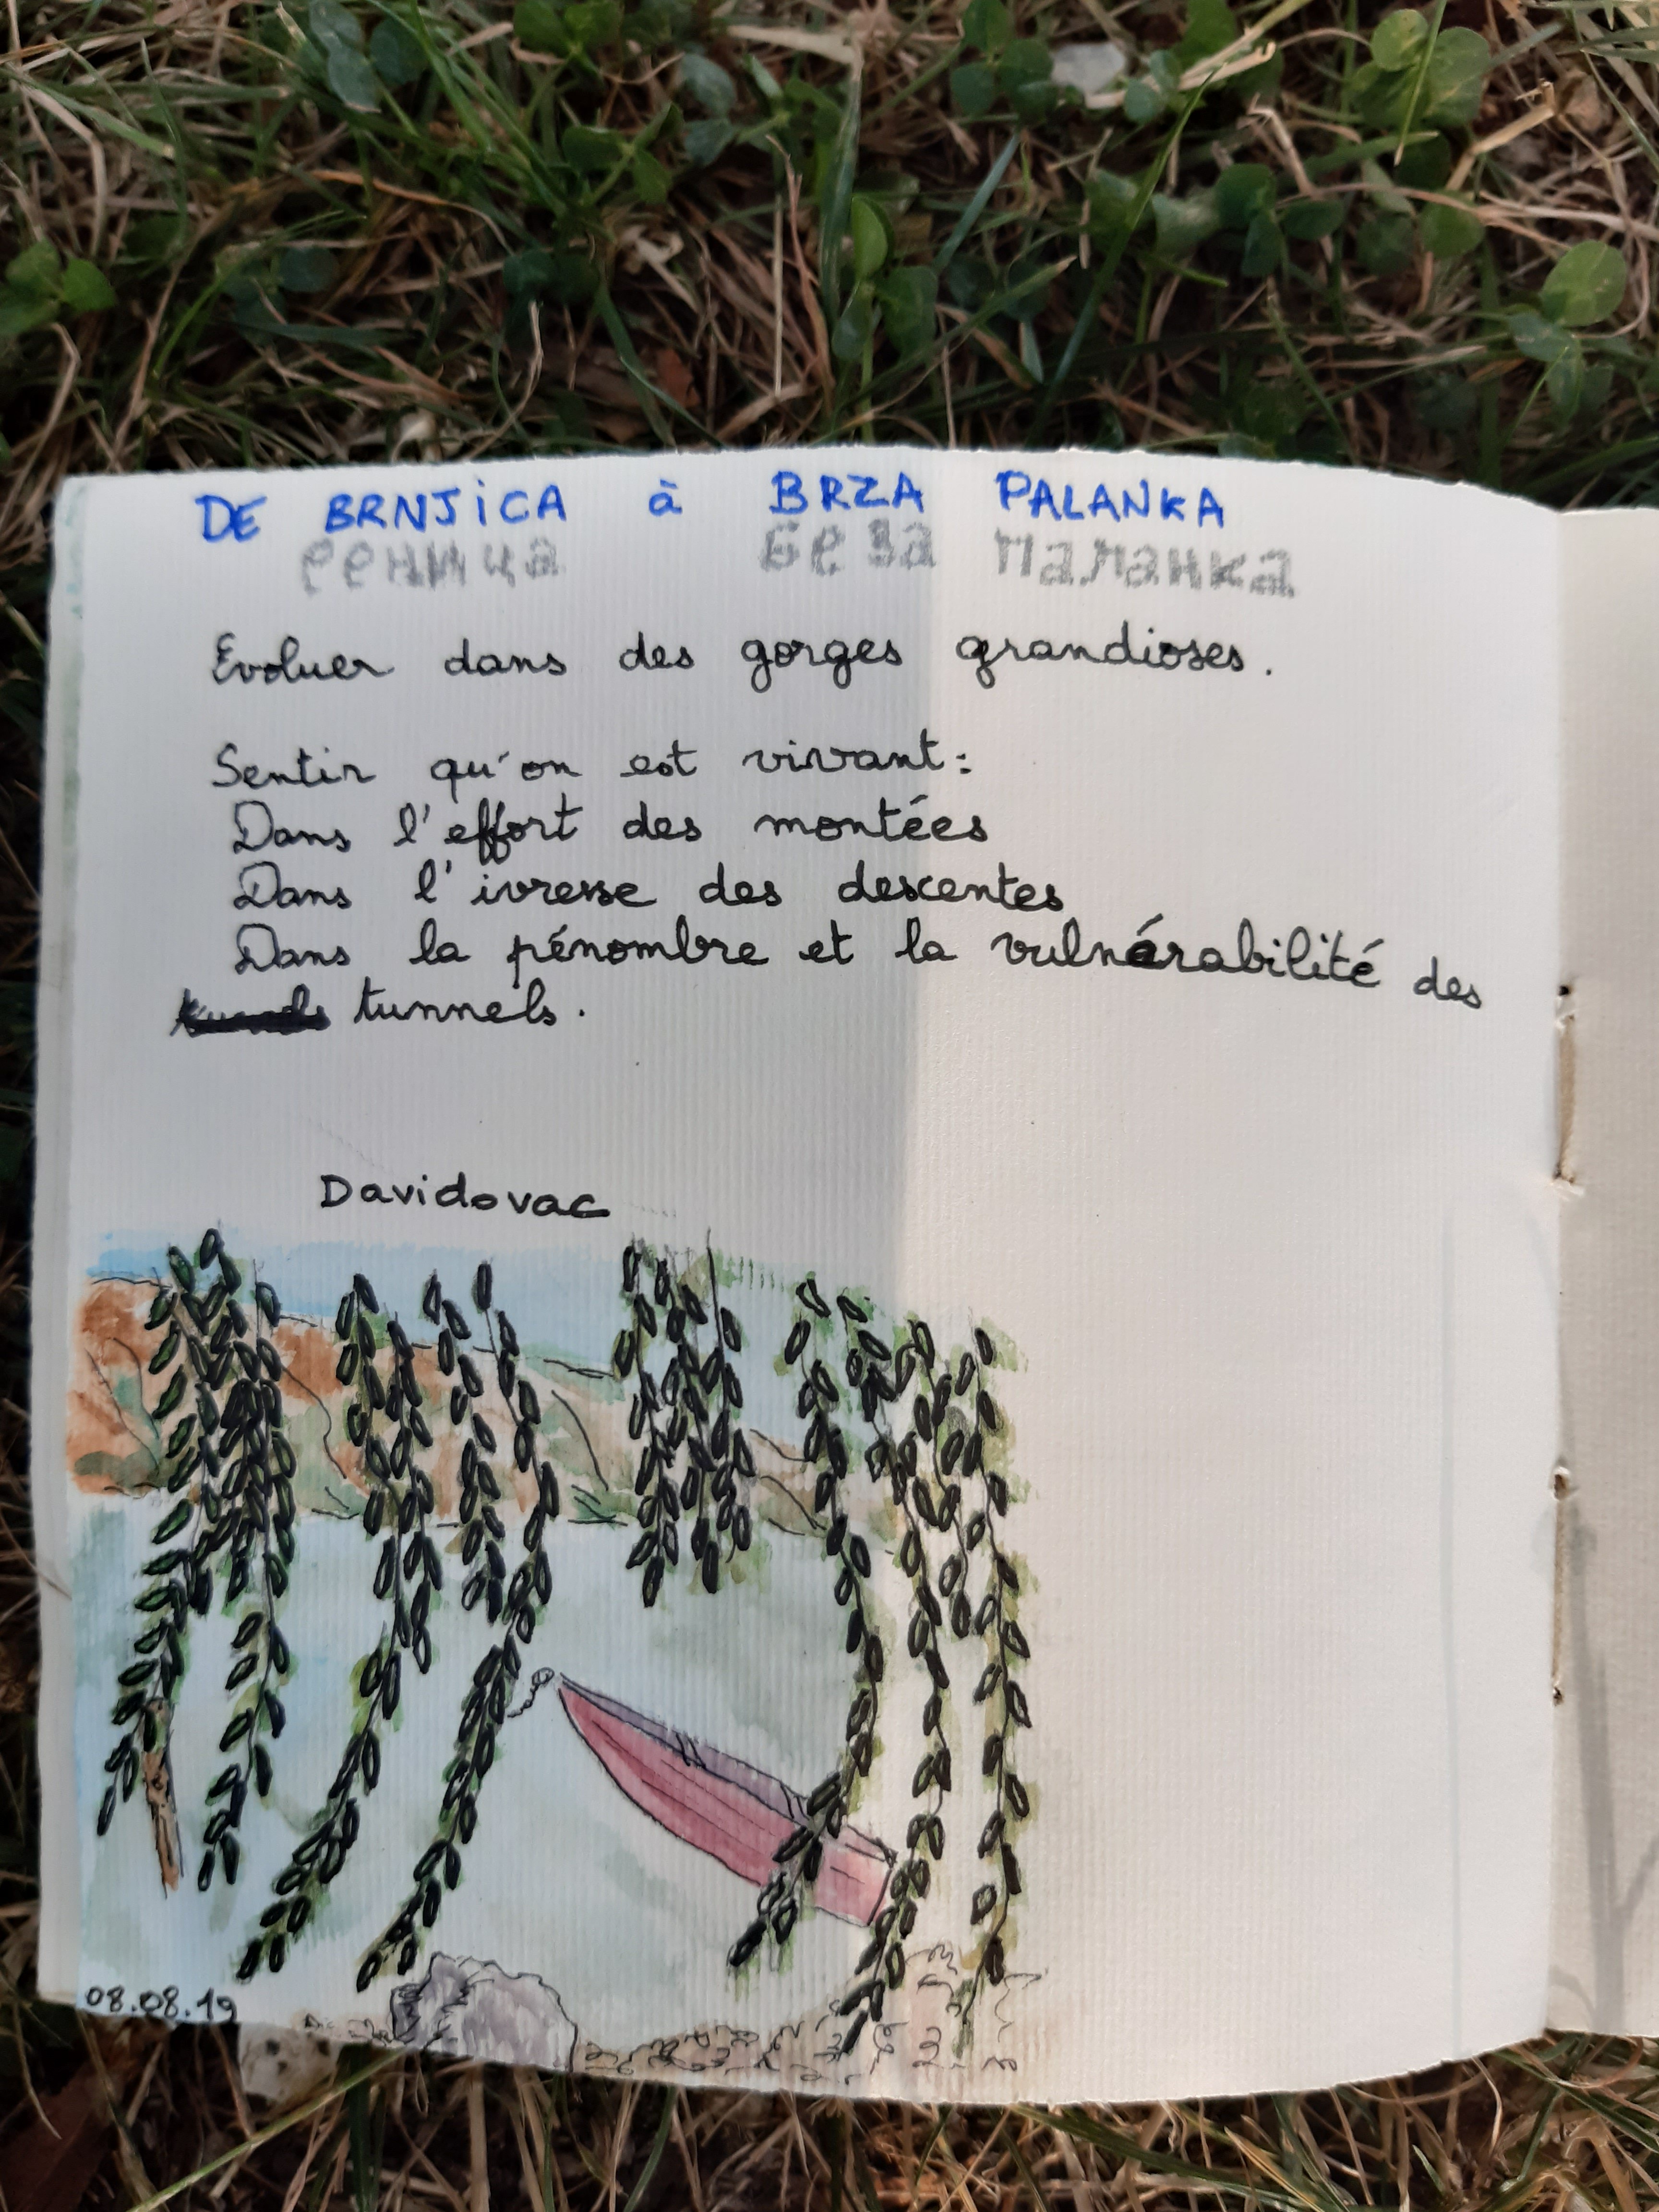 DE BRNJiCA à BRZA PALANKA
реница брза паланка
Evoluer dans des gorges grandioses.
Sentir qu'on est vivant:
Dans l'effort des montées
Dans l'ivresse des descentes
Dans la pénombre et la vulnérabilité des
tunnels.
Davidovac
08.08.19